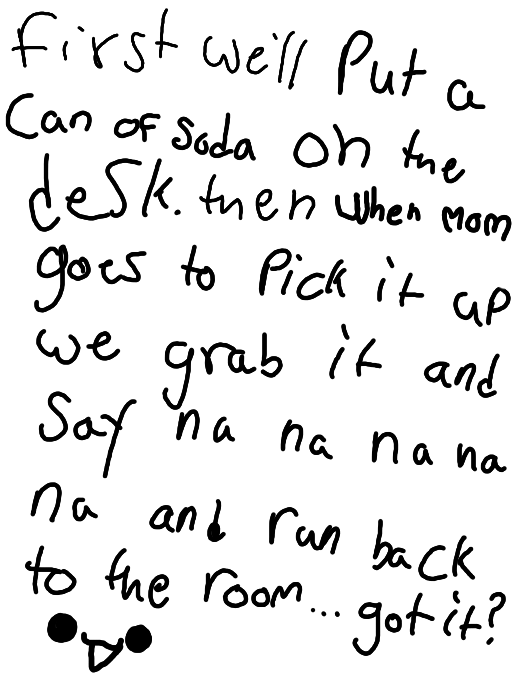 First we'll Put a
Can of Soda on the
desk. then when mom
goes to Pick it up
we grab it and
Say na na na na
na and run back
to the room... got it?